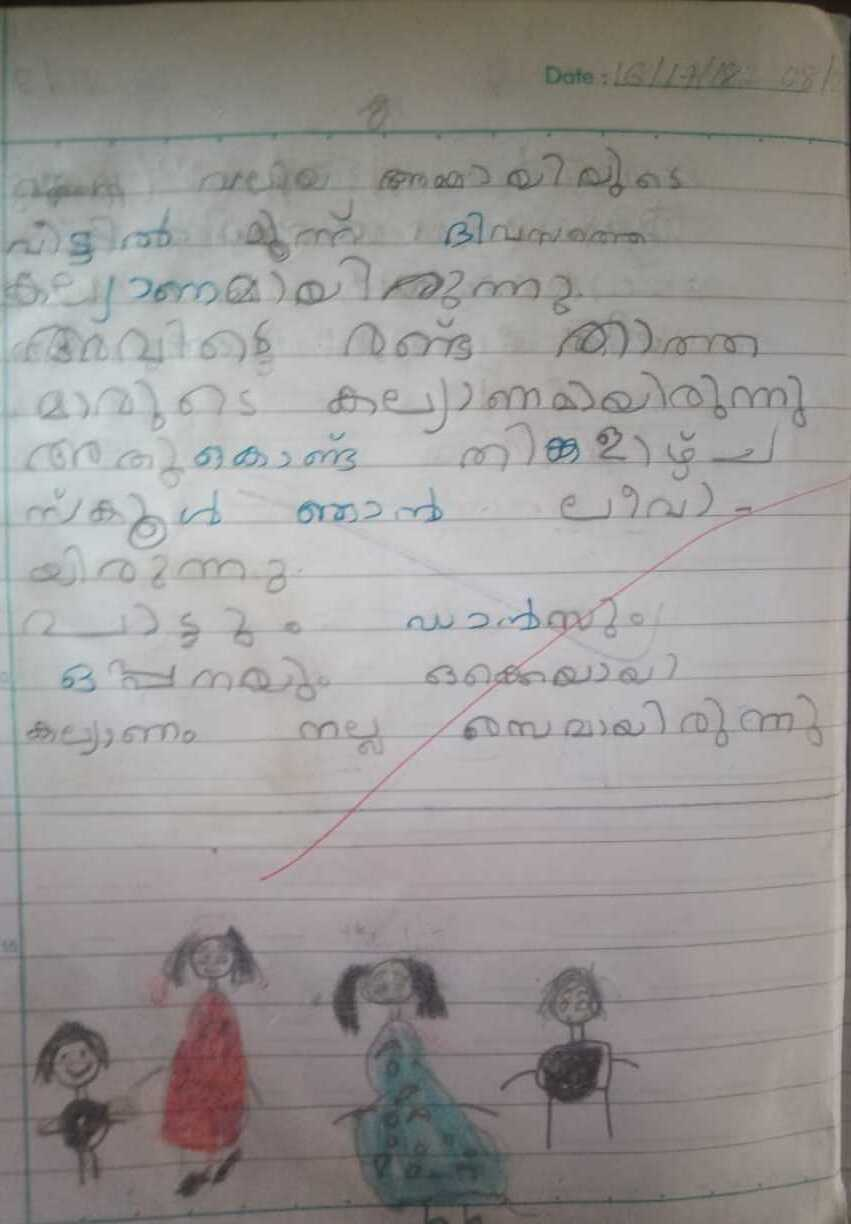 Date : 16/17/12 08/
8
വലിയ അമ്മായിയുടെ
വിട്ടിൽ മൂന്ന് ദിവസത്തെ
കല്യാണമായിരുന്നു.
അവിടെ രണ്ട് താത്ത
മാവുടെ കല്യാണമായിരുന്നു
അതുകൊണ്ട് തിങ്കളാഴ്ച
സ്കൂൾ ഞാൻ ലീവാ-
യിരുന്നു.
പാട്ടും ഡാൻസും
ഒപ്പനയും ഒക്കെയായി
കല്യാണം നല്ല രസമായിരുന്നു